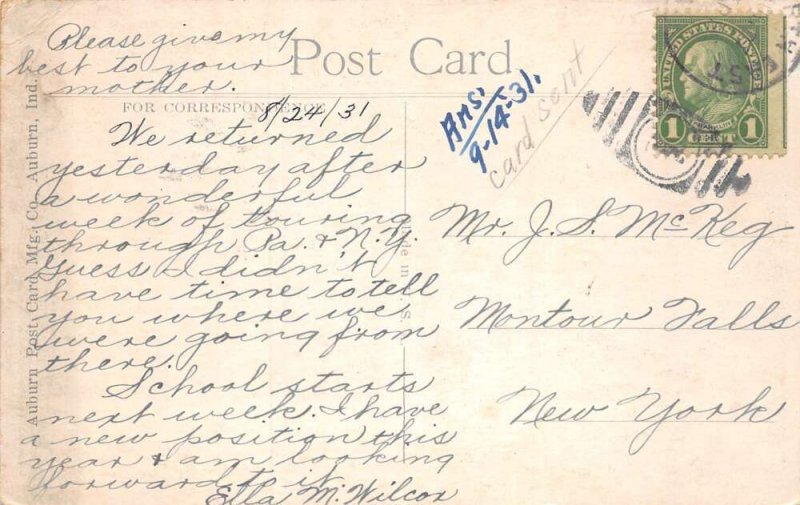 Please give my
best to your
mother.
Post Card
FOR CORRESPONDENCE
8/24/31
We returned
yesterday after
a wonderful
week of touring
through Pa. & N.Y.
Guess I didn't
have time to tell
you where we
were going from
there.
School starts
next week. I have
a new position this
year & am looking
forward to it.
Ella M. Wilcox
Auburn Post Card Mfg. Co. Auburn, Ind.
Ans.
9-14-31.
card sent
UNITED STATES POSTAGE
FRANKLIN
1 CENT 1
Mr. J. S. McKeg
Montour Falls
New York